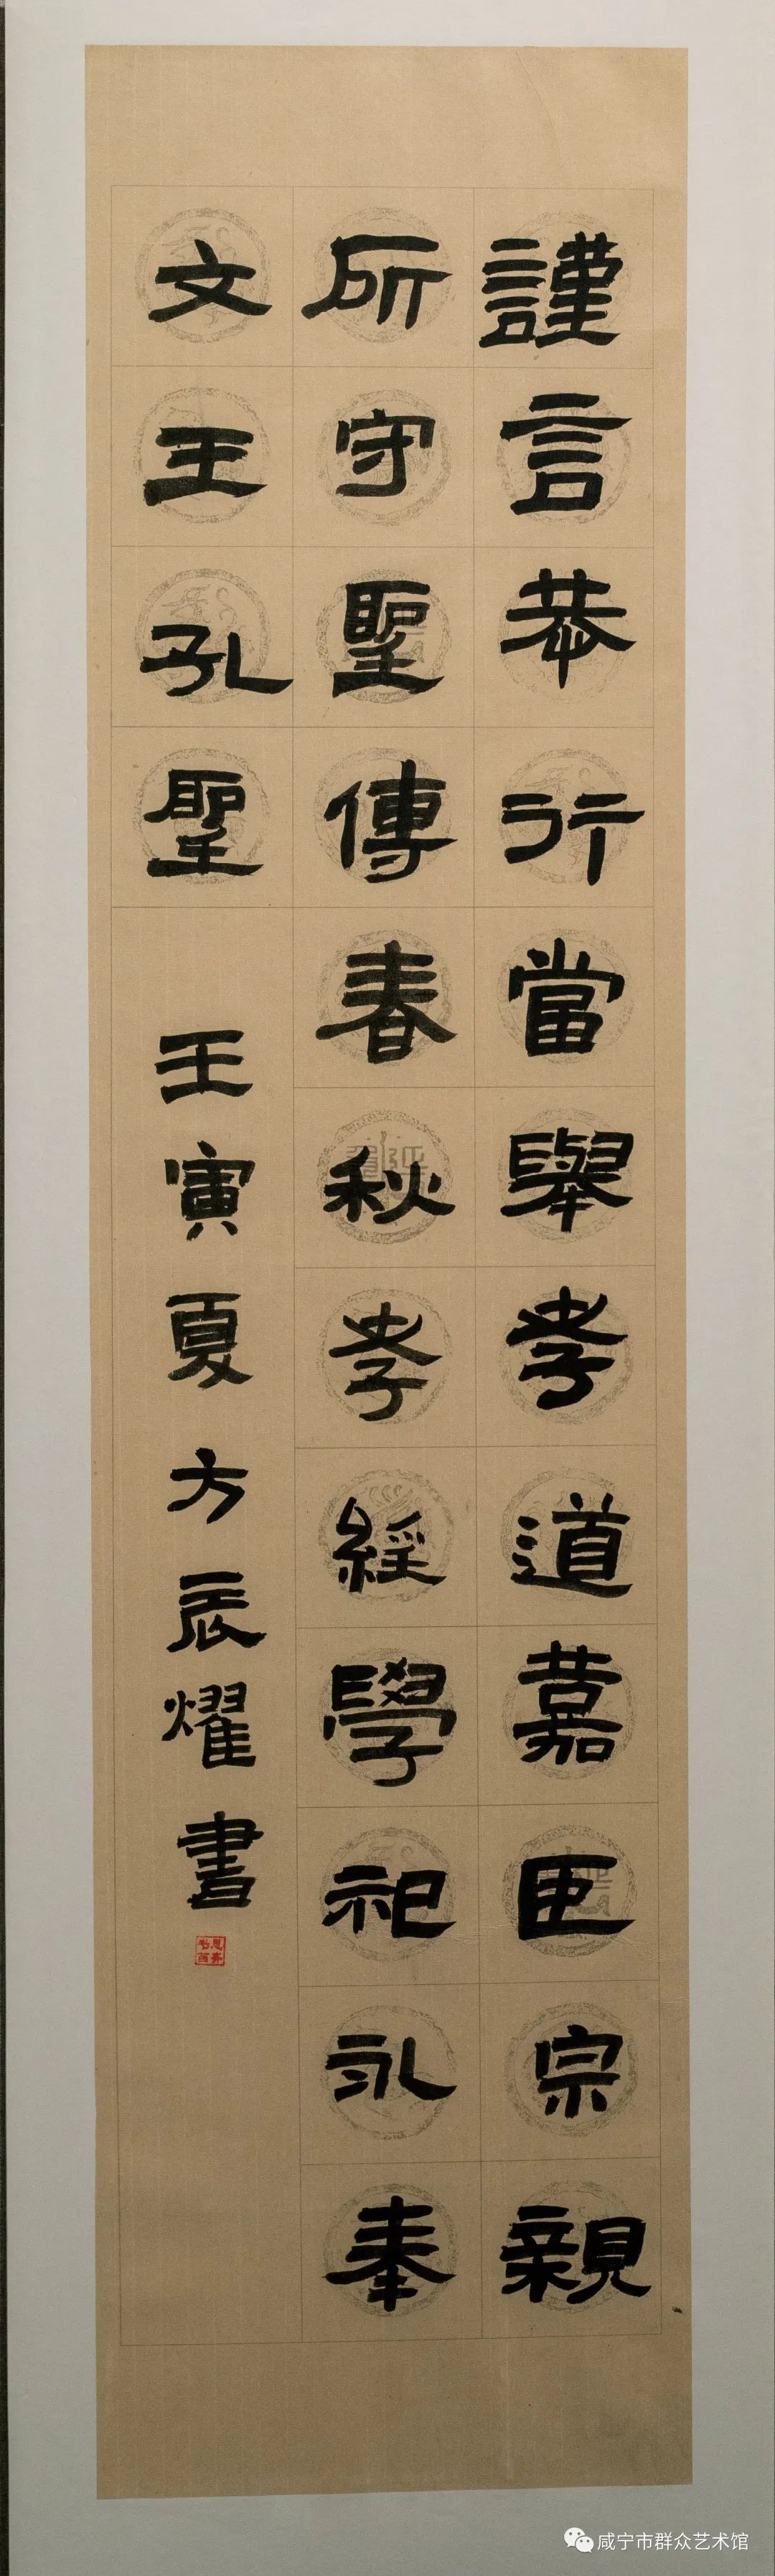 謹言恭行當舉孝道嘉臣宗親
所守聖傳春秋孝經學祀永奉
文王孔聖
壬寅夏方辰燿書
咸宁市群众艺术馆